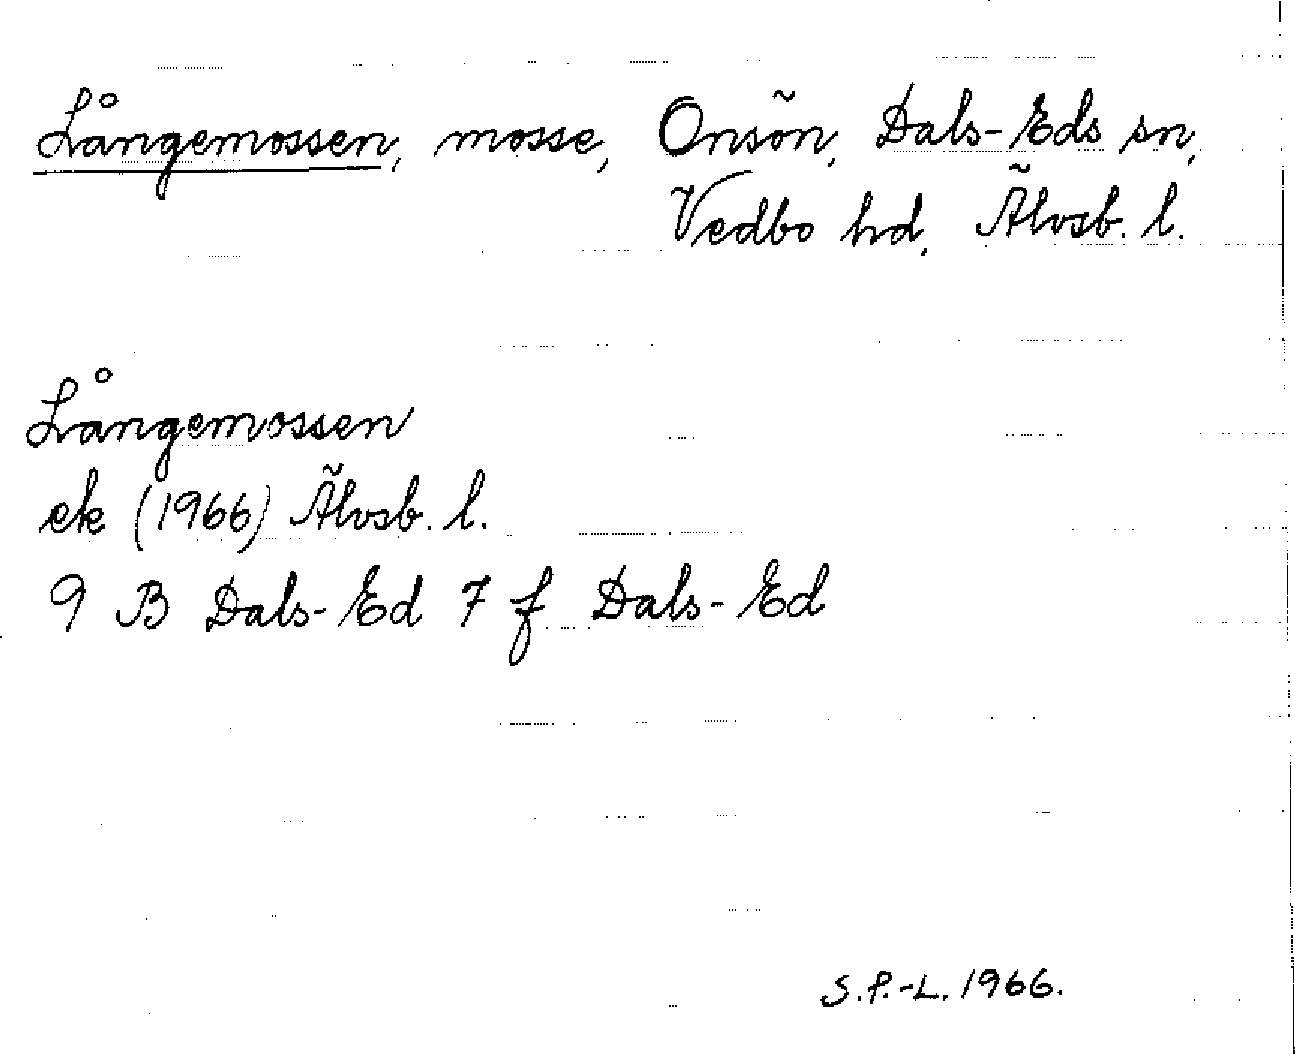 Långemossen, mosse, Onsön, Dals-Eds sn,
Vedbo hd, Älvsb. l.
Långemossen
ek (1966) Älvsb. l.
9 B Dals-Ed 7 f Dals-Ed
S.P.-L. 1966.